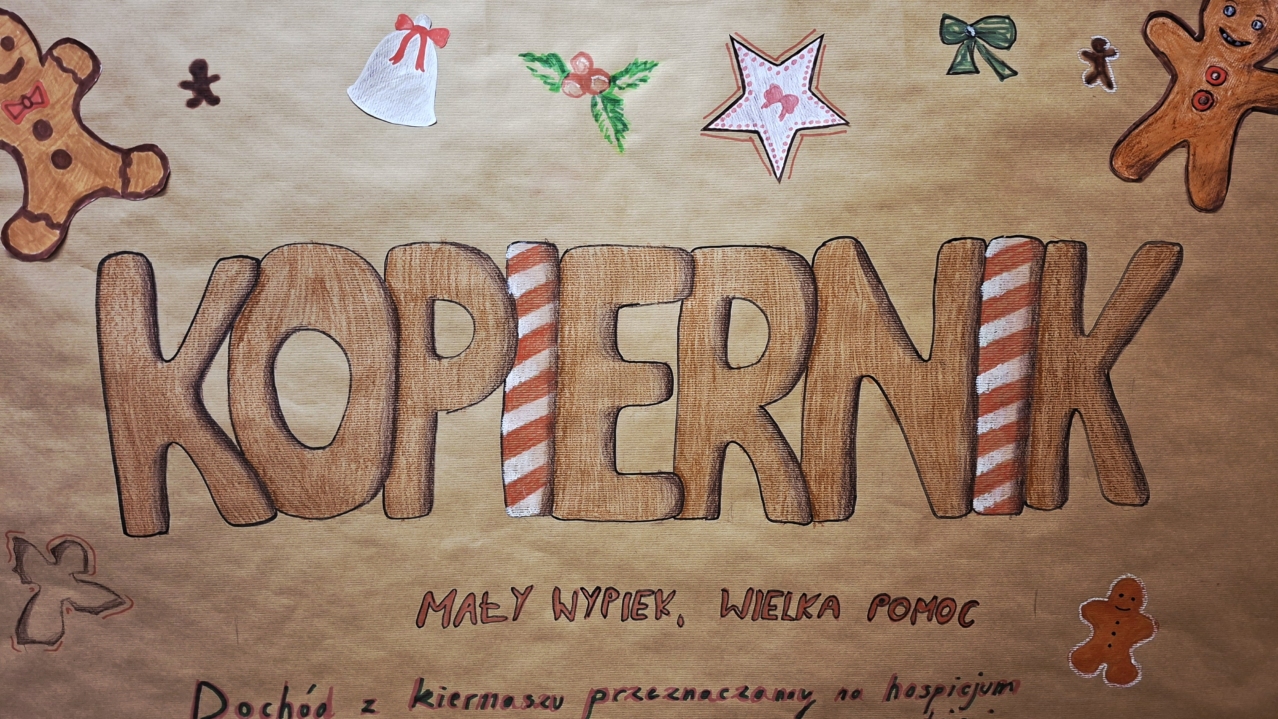 KOPIERNIK
MAŁY WYPIEK, WIELKA POMOC
Dochód z kiermaszu przeznaczony na hospicjum